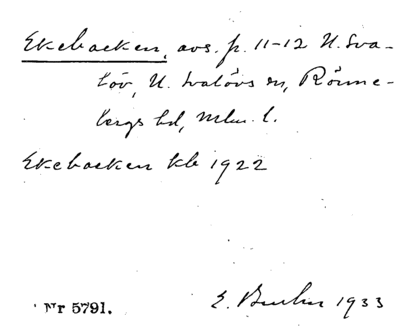 Ekebacken, avs. p. 11-12 N. Sva-
löv, N. Svalövs sn, Rönne-
bergs hd, Mlm. l.
Ekebacken kb 1922
Nr 5791.
E. 1933